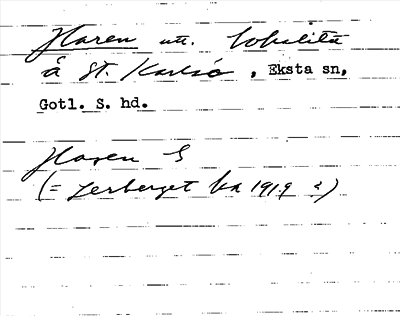 Haren utt. lokalitet
å St. Karlsö, Eksta sn,
Gotl. S. hd.
Haren G
(= Jerberget ka 1919 ?)